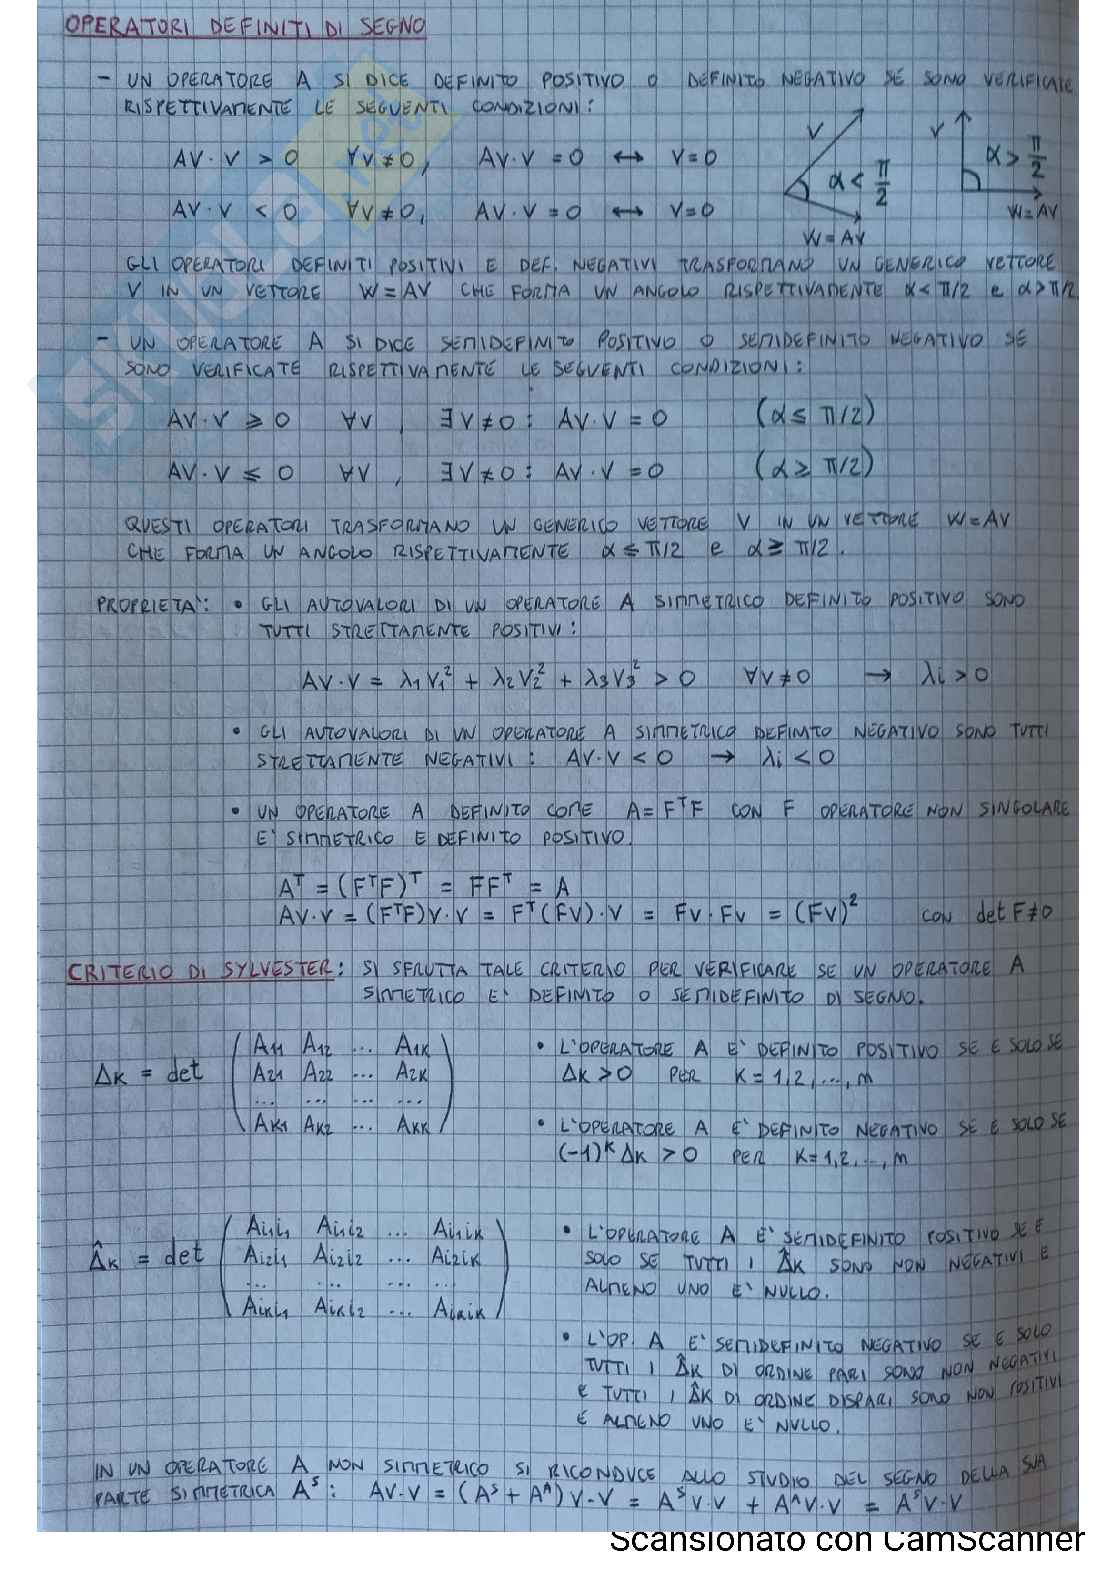 OPERATORI DEFINITI DI SEGNO
- UN OPERATORE A SI DICE DEFINITO POSITIVO O DEFINITO NEGATIVO SE SONO VERIFICATE
RISPETTIVAMENTE LE SEGUENTI CONDIZIONI:
AV·V > 0 ∀V≠0, AV·V = 0 ↔ V=0
AV·V < 0 ∀V≠0, AV·V = 0 ↔ V=0
V α < π/2 W=AV
V α > π/2 W=AV
GLI OPERATORI DEFINITI POSITIVI E DEF. NEGATIVI TRASFORMANO UN GENERICO VETTORE
V IN UN VETTORE W=AV CHE FORMA UN ANGOLO RISPETTIVAMENTE α<π/2 e α>π/2
- UN OPERATORE A SI DICE SEMIDEFINITO POSITIVO O SEMIDEFINITO NEGATIVO SE
SONO VERIFICATE RISPETTIVAMENTE LE SEGUENTI CONDIZIONI:
AV·V ≥ 0 ∀V , ∃V≠0 : AV·V = 0 (α ≤ π/2)
AV·V ≤ 0 ∀V , ∃V≠0 : AV·V = 0 (α ≥ π/2)
QUESTI OPERATORI TRASFORMANO UN GENERICO VETTORE V IN UN VETTORE W=AV
CHE FORMA UN ANGOLO RISPETTIVAMENTE α ≤ π/2 e α ≥ π/2.
PROPRIETA': • GLI AUTOVALORI DI UN OPERATORE A SIMMETRICO DEFINITO POSITIVO SONO
TUTTI STRETTAMENTE POSITIVI:
AV·V = λ₁V₁² + λ₂V₂² + λ₃V₃² > 0 ∀V≠0 → λi > 0
• GLI AUTOVALORI DI UN OPERATORE A SIMMETRICO DEFINITO NEGATIVO SONO TUTTI
STRETTAMENTE NEGATIVI: AV·V < 0 → λi < 0
• UN OPERATORE A DEFINITO COME A=FᵀF CON F OPERATORE NON SINGOLARE
E' SIMMETRICO E DEFINITO POSITIVO.
Aᵀ = (FᵀF)ᵀ = FFᵀ = A
AV·V = (FᵀF)V·V = Fᵀ(FV)·V = FV·FV = (FV)² CON det F≠0
CRITERIO DI SYLVESTER: SI SFRUTTA TALE CRITERIO PER VERIFICARE SE UN OPERATORE A
SIMMETRICO E' DEFINITO O SEMIDEFINITO DI SEGNO.
ΔK = det
A11 A12 ... A1K
A21 A22 ... A2K
... ... ... ...
AK1 AK2 ... AKK
• L'OPERATORE A E' DEFINITO POSITIVO SE E SOLO SE
ΔK > 0 PER K = 1,2,...,m
• L'OPERATORE A E' DEFINITO NEGATIVO SE E SOLO SE
(-1)ᴷ ΔK > 0 PER K=1,2,...,m
Δ̂K = det
Ai1i1 Ai1i2 ... Ai1iK
Ai2i1 Ai2i2 ... Ai2iK
... ... ... ...
AiKi1 AiKi2 ... AiKiK
• L'OPERATORE A E' SEMIDEFINITO POSITIVO SE E
SOLO SE TUTTI I Δ̂K SONO NON NEGATIVI E
ALMENO UNO E' NULLO.
• L'OP. A E' SEMIDEFINITO NEGATIVO SE E SOLO
TUTTI I Δ̂K DI ORDINE PARI SONO NON NEGATIVI
E TUTTI I Δ̂K DI ORDINE DISPARI SONO NON POSITIVI
E ALMENO UNO E' NULLO.
IN UN OPERATORE A NON SIMMETRICO SI RICONDUCE ALLO STUDIO DEL SEGNO DELLA SUA
PARTE SIMMETRICA Aˢ: AV·V = (Aˢ + Aᴬ)V·V = AˢV·V + AᴬV·V = AˢV·V
Scansionato con CamScanner